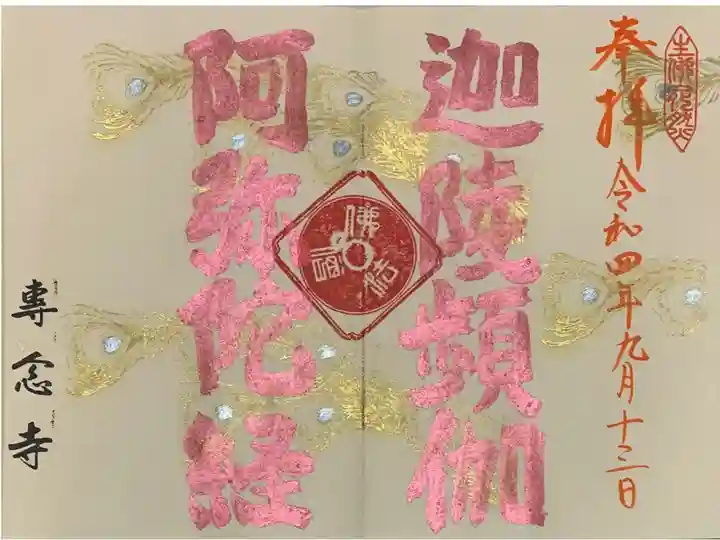 奉拝 令和四年九月十三日
迦陵頻伽
阿弥陀経
專念寺